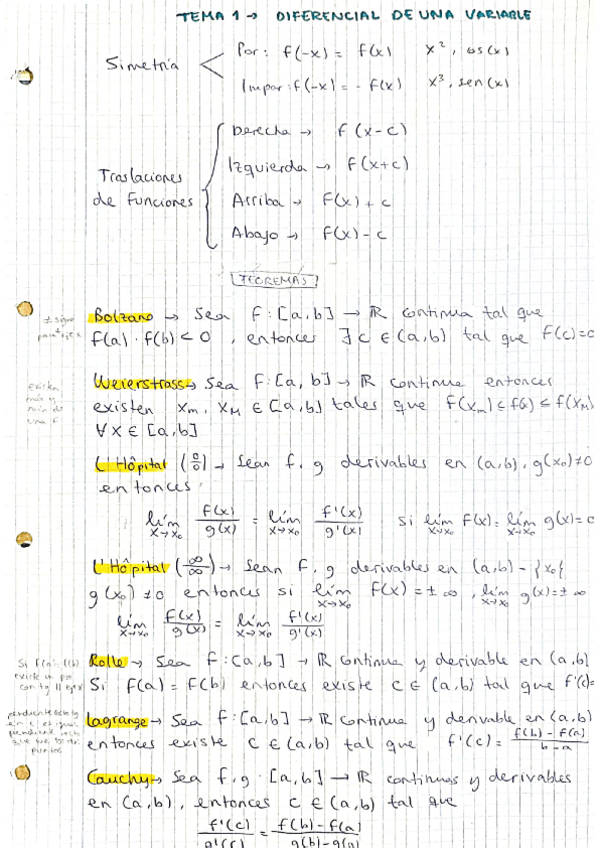 TEMA 1 → DIFERENCIAL DE UNA VARIABLE
Simetría
Par: f(-x) = f(x) x², cos(x)
Impar: f(-x) = - f(x) x³, sen(x)
Traslaciones de funciones
Derecha → f(x-c)
Izquierda → f(x+c)
Arriba → f(x)+c
Abajo → f(x)-c
TEOREMAS
≠ signo
Bolzano → Sea f: [a,b] → ℝ continua tal que
f(a) · f(b) < 0, entonces ∃ c ∈ (a,b) tal que f(c)=0
existen
máx y
mín de
una f
Weierstrass → Sea f: [a,b] → ℝ continua entonces
existen xm, xM ∈ [a,b] tales que f(xm) ≤ f(x) ≤ f(xM)
∀ x ∈ [a,b]
L'Hôpital (0/0) → Sean f, g derivables en (a,b), g(x₀)≠0
entonces:
lím x→x₀ f(x)/g(x) = lím x→x₀ f'(x)/g'(x) si lím x→x₀ f(x) = lím x→x₀ g(x) = 0
L'Hôpital (∞/∞) → Sean f, g derivables en (a,b) - {x₀{
g(x₀) ≠ 0 entonces si lím x→x₀ f(x) = ±∞, lím x→x₀ g(x) = ±∞
lím x→x₀ f(x)/g(x) = lím x→x₀ f'(x)/g'(x)
Rolle → Sea f: [a,b] → ℝ continua y derivable en (a,b)
Si f(a) = f(b) entonces existe c ∈ (a,b) tal que f'(c)=
Lagrange → Sea f: [a,b] → ℝ continua y derivable en (a,b)
entonces existe c ∈ (a,b) tal que f'(c) = f(b) - f(a) / b-a
Cauchy → Sea f, g: [a,b] → ℝ continuas y derivables
en (a,b), entonces c ∈ (a,b) tal que
f'(c)/g'(c) = f(b) - f(a) / g(b) - g(a)